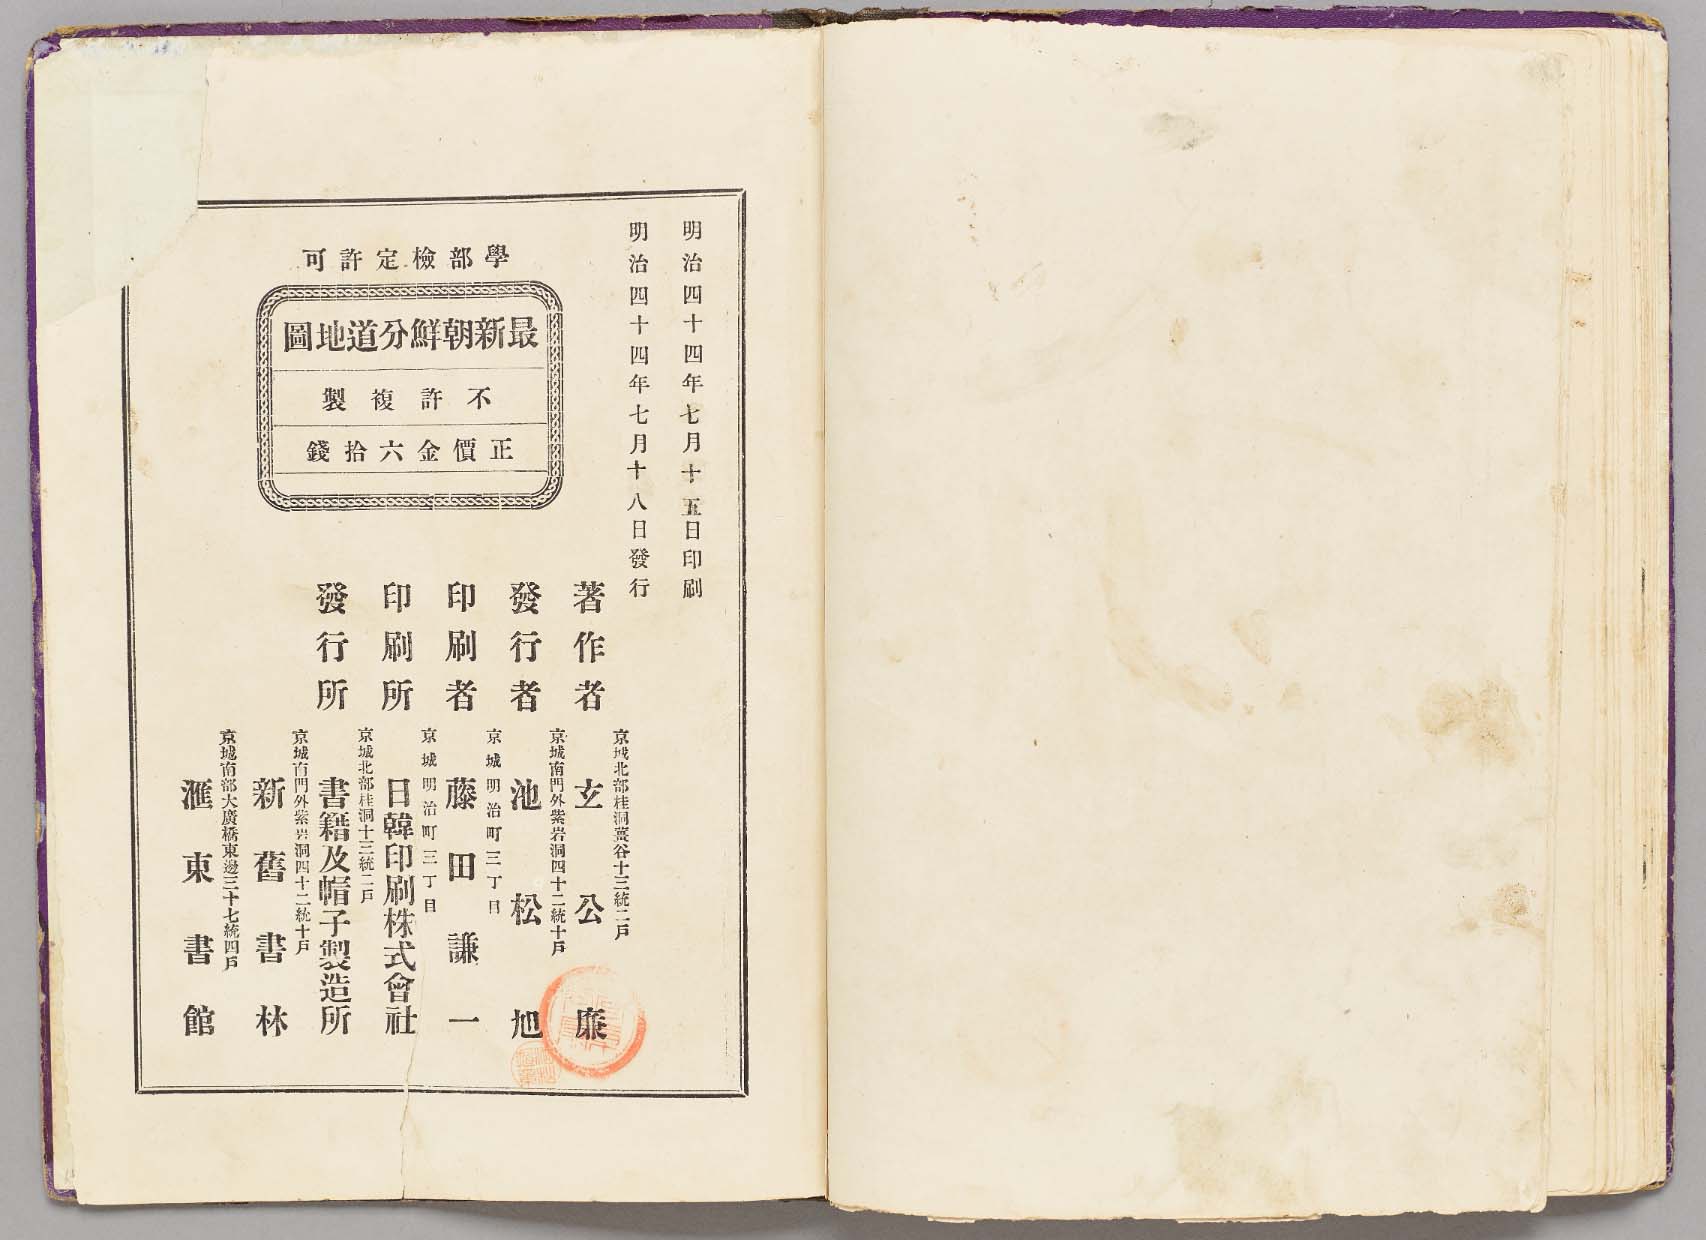 明治四十四年七月十五日印刷
明治四十四年七月十八日發行
學部檢定許可
最新朝鮮分道地圖
不許複製
正價金六拾錢
著作者
京城北部桂洞薑谷十三統二戶
玄公廉
發行者
京城南門外紫岩洞四十二統十戶
池松旭
印刷者
京城明治町三丁目
藤田謙一
印刷所
京城明治町三丁目
日韓印刷株式會社
發行所
京城北部桂洞十三統二戶
書籍及帽子製造所
京城南門外紫岩洞四十二統十戶
新舊書林
京城南部大廣橋東邊三十七統四戶
滙東書館